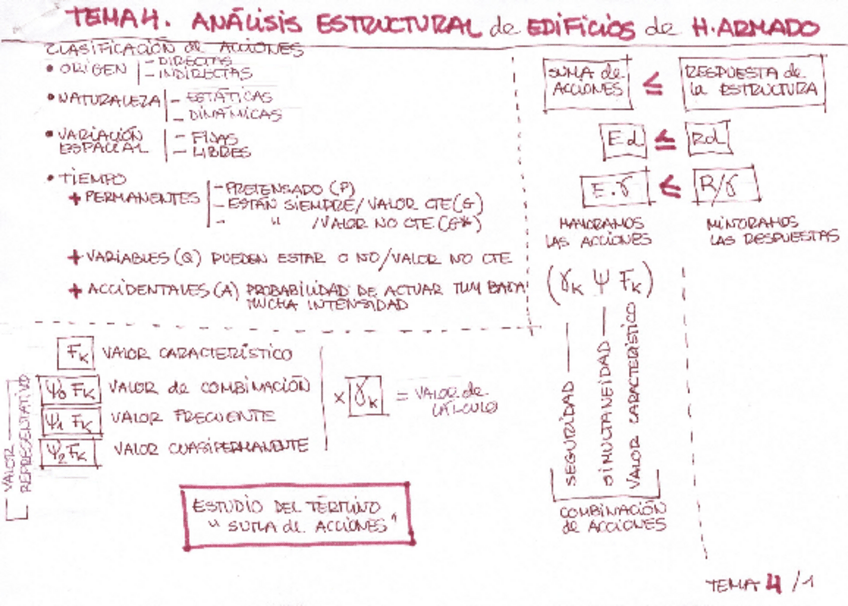 TEMA 4. ANÁLISIS ESTRUCTURAL de EDIFICIOS de H. ARMADO
CLASIFICACIÓN de ACCIONES
• ORIGEN |- DIRECTAS
- INDIRECTAS
• NATURALEZA |- ESTÁTICAS
- DINÁMICAS
• VARIACIÓN ESPACIAL |- FIJAS
- LIBRES
• TIEMPO
+ PERMANENTES |- PRETENSADO (P)
- ESTÁN SIEMPRE/ VALOR CTE (G)
- " /VALOR NO CTE (G*)
+ VARIABLES (Q) PUEDEN ESTAR O NO/VALOR NO CTE
+ ACCIDENTALES (A) PROBABILIDAD DE ACTUAR MUY BAJA
MUCHA INTENSIDAD
SUMA de ACCIONES ≤ RESPUESTA de la ESTRUCTURA
Ed ≤ Rd
E.γ ≤ R/γ
MAYORAMOS LAS ACCIONES
MINORAMOS LAS RESPUESTAS
(γk Ψ Fk)
SEGURIDAD
SIMULTANEIDAD
VALOR CARACTERÍSTICO
COMBINACIÓN
de ACCIONES
Fk VALOR CARACTERÍSTICO
Ψ0 Fk VALOR de COMBINACIÓN
Ψ1 Fk VALOR FRECUENTE
Ψ2 Fk VALOR CUASIPERMANENTE
VALOR REPRESENTATIVO
x γk = VALOR de CÁLCULO
ESTUDIO DEL TÉRMINO
"SUMA de ACCIONES"
TEMA 4 /1